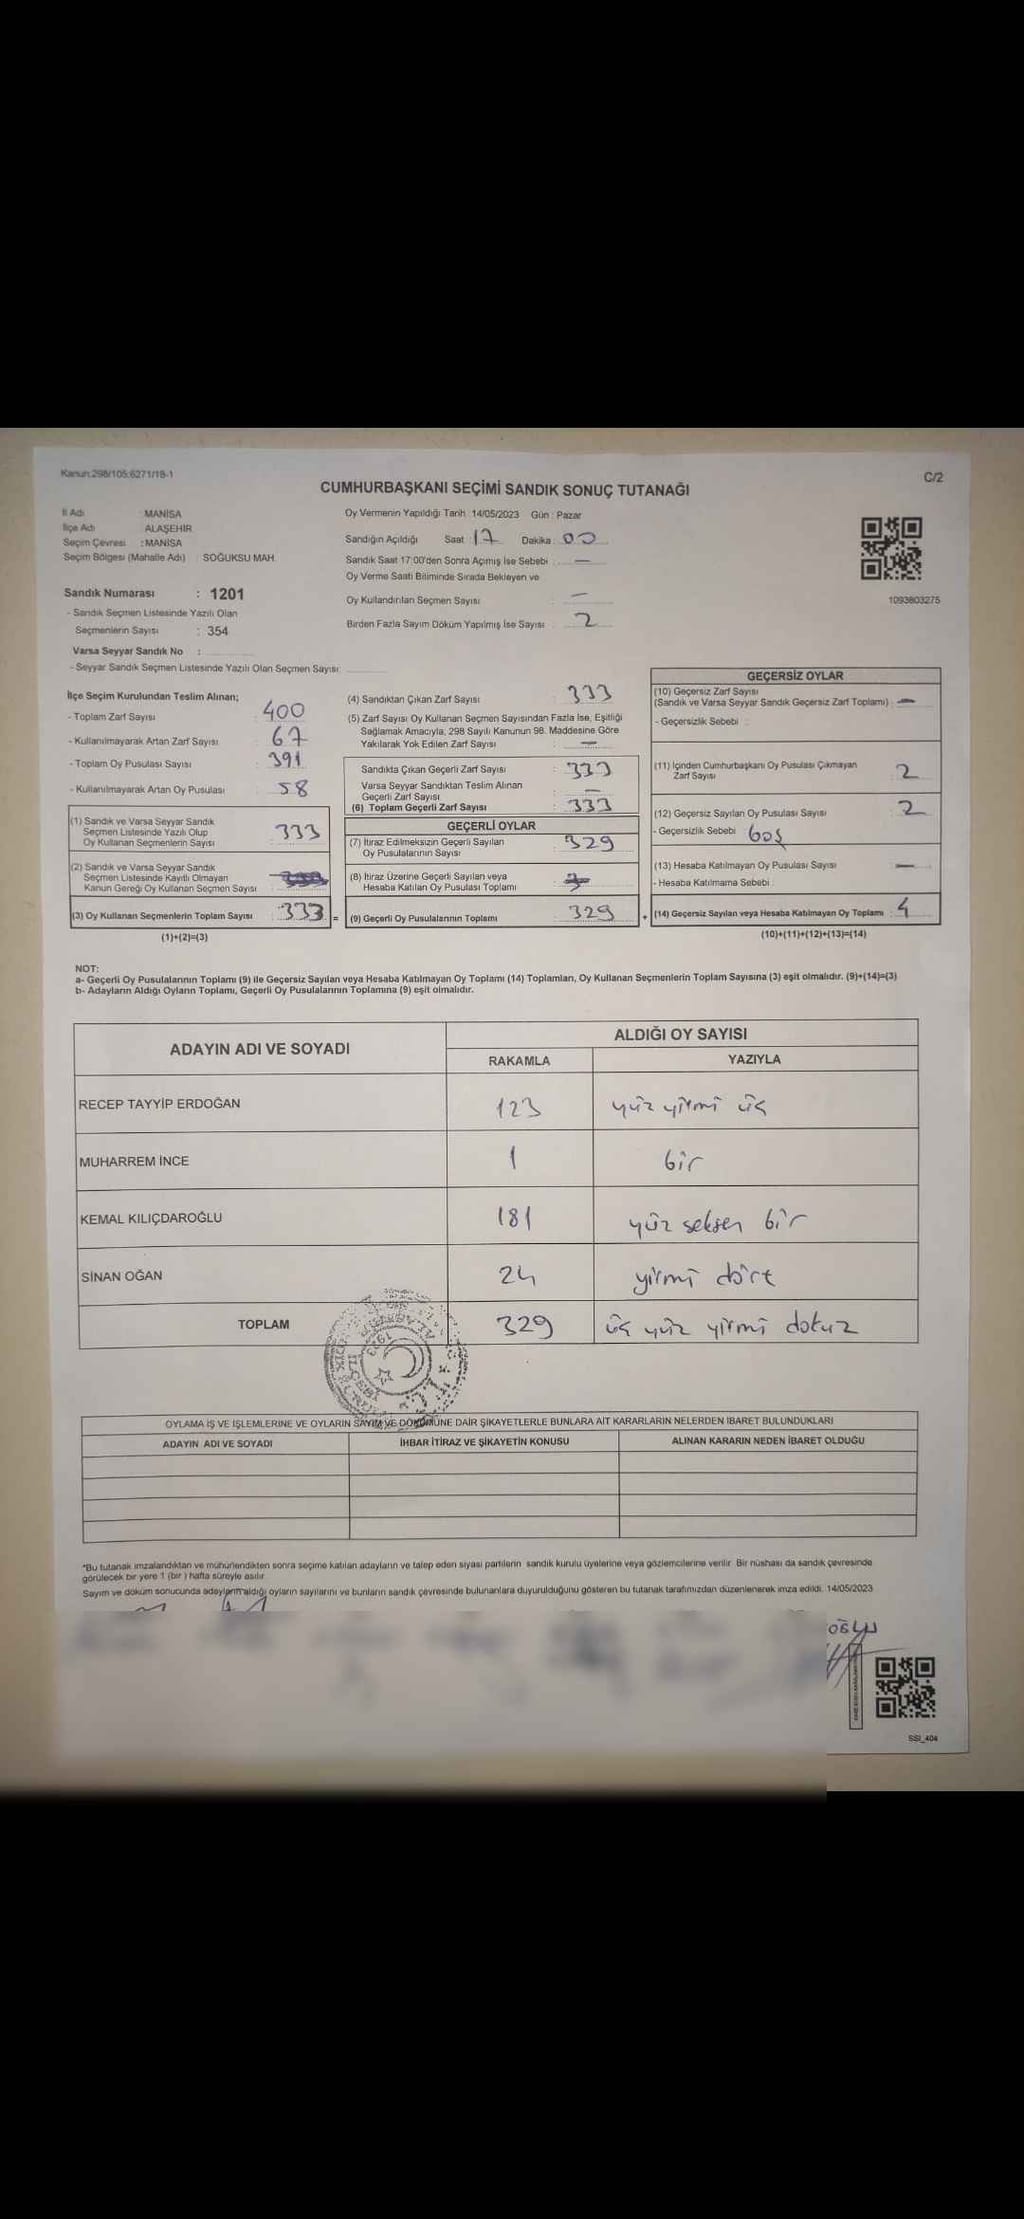 Kanun:298/105:6271/18-1
C/2
CUMHURBAŞKANI SEÇİMİ SANDIK SONUÇ TUTANAĞI
İl Adı MANİSA
İlçe Adı ALAŞEHİR
Seçim Çevresi : MANİSA
Seçim Bölgesi (Mahalle Adı) SOĞUKSU MAH.
Sandık Numarası : 1201
- Sandık Seçmen Listesinde Yazılı Olan
Seçmenlerin Sayısı : 354
Varsa Seyyar Sandık No :
- Seyyar Sandık Seçmen Listesinde Yazılı Olan Seçmen Sayısı:
Oy Vermenin Yapıldığı Tarih 14/05/2023 Gün : Pazar
Sandığın Açıldığı Saat 17 Dakika : 00
Sandık Saat 17:00'den Sonra Açımış İse Sebebi : —
Oy Verme Saati Bitiminde Sırada Bekleyen ve
Oy Kullandırılan Seçmen Sayısı —
Birden Fazla Sayım Döküm Yapılmış İse Sayısı : 2
1093803275
İlçe Seçim Kurulundan Teslim Alınan;
- Toplam Zarf Sayısı : 400
- Kullanılmayarak Artan Zarf Sayısı : 67
- Toplam Oy Pusulası Sayısı : 391
- Kullanılmayarak Artan Oy Pusulası : 58
(1) Sandık ve Varsa Seyyar Sandık
Seçmen Listesinde Yazılı Olup
Oy Kullanan Seçmenlerin Sayısı : 333
(2) Sandık ve Varsa Seyyar Sandık
Seçmen Listesinde Kayıtlı Olmayan
Kanun Gereği Oy Kullanan Seçmen Sayısı :
(3) Oy Kullanan Seçmenlerin Toplam Sayısı : 333 =
(1)+(2)=(3)
(4) Sandıktan Çıkan Zarf Sayısı : 333
(5) Zarf Sayısı Oy Kullanan Seçmen Sayısından Fazla İse, Eşitliği
Sağlamak Amacıyla, 298 Sayılı Kanunun 98. Maddesine Göre
Yakılarak Yok Edilen Zarf Sayısı : —
Sandıkta Çıkan Geçerli Zarf Sayısı : 333
Varsa Seyyar Sandıktan Teslim Alınan
Geçerli Zarf Sayısı : —
(6) Toplam Geçerli Zarf Sayısı : 333
GEÇERLİ OYLAR
(7) İtiraz Edilmeksizin Geçerli Sayılan
Oy Pusulalarının Sayısı : 329
(8) İtiraz Üzerine Geçerli Sayılan veya
Hesaba Katılan Oy Pusulası Toplamı :
(9) Geçerli Oy Pusulalarının Toplamı : 329 +
GEÇERSİZ OYLAR
(10) Geçersiz Zarf Sayısı
(Sandık ve Varsa Seyyar Sandık Geçersiz Zarf Toplamı) : —
- Geçersizlik Sebebi :
(11) İçinden Cumhurbaşkanı Oy Pusulası Çıkmayan
Zarf Sayısı 2
(12) Geçersiz Sayılan Oy Pusulası Sayısı : 2
- Geçersizlik Sebebi boş
(13) Hesaba Katılmayan Oy Pusulası Sayısı —
- Hesaba Katılmama Sebebi :
(14) Geçersiz Sayılan veya Hesaba Katılmayan Oy Toplamı : 4
(10)+(11)+(12)+(13)=(14)
NOT:
a- Geçerli Oy Pusulalarının Toplamı (9) ile Geçersiz Sayılan veya Hesaba Katılmayan Oy Toplamı (14) Toplamları, Oy Kullanan Seçmenlerin Toplam Sayısına (3) eşit olmalıdır. (9)+(14)=(3)
b- Adayların Aldığı Oyların Toplamı, Geçerli Oy Pusulalarının Toplamına (9) eşit olmalıdır.
ADAYIN ADI VE SOYADI ALDIĞI OY SAYISI
RAKAMLA YAZIYLA
RECEP TAYYİP ERDOĞAN 123 yüz yirmi üç
MUHARREM İNCE 1 bir
KEMAL KILIÇDAROĞLU 181 yüz seksen bir
SİNAN OĞAN 24 yirmi dört
TOPLAM 329 üç yüz yirmi dokuz
OYLAMA İŞ VE İŞLEMLERİNE VE OYLARIN SAYIM VE DÖKÜMÜNE DAİR ŞİKAYETLERLE BUNLARA AİT KARARLARIN NELERDEN İBARET BULUNDUKLARI
ADAYIN ADI VE SOYADI İHBAR İTİRAZ VE ŞİKAYETİN KONUSU ALINAN KARARIN NEDEN İBARET OLDUĞU
*Bu tutanak imzalandıktan ve mühürlendikten sonra seçime katılan adayların ve talep eden siyasi partilerin sandık kurulu üyelerine veya gözlemcilerine verilir. Bir nüshası da sandık çevresinde
görülecek bir yere 1 (bir) hafta süreyle asılır.
Sayım ve döküm sonucunda adayların aldığı oyların sayılarını ve bunların sandık çevresinde bulunanlara duyurulduğunu gösteren bu tutanak tarafımızdan düzenlenerek imza edildi. 14/05/2023
OĞLU
SSI_404